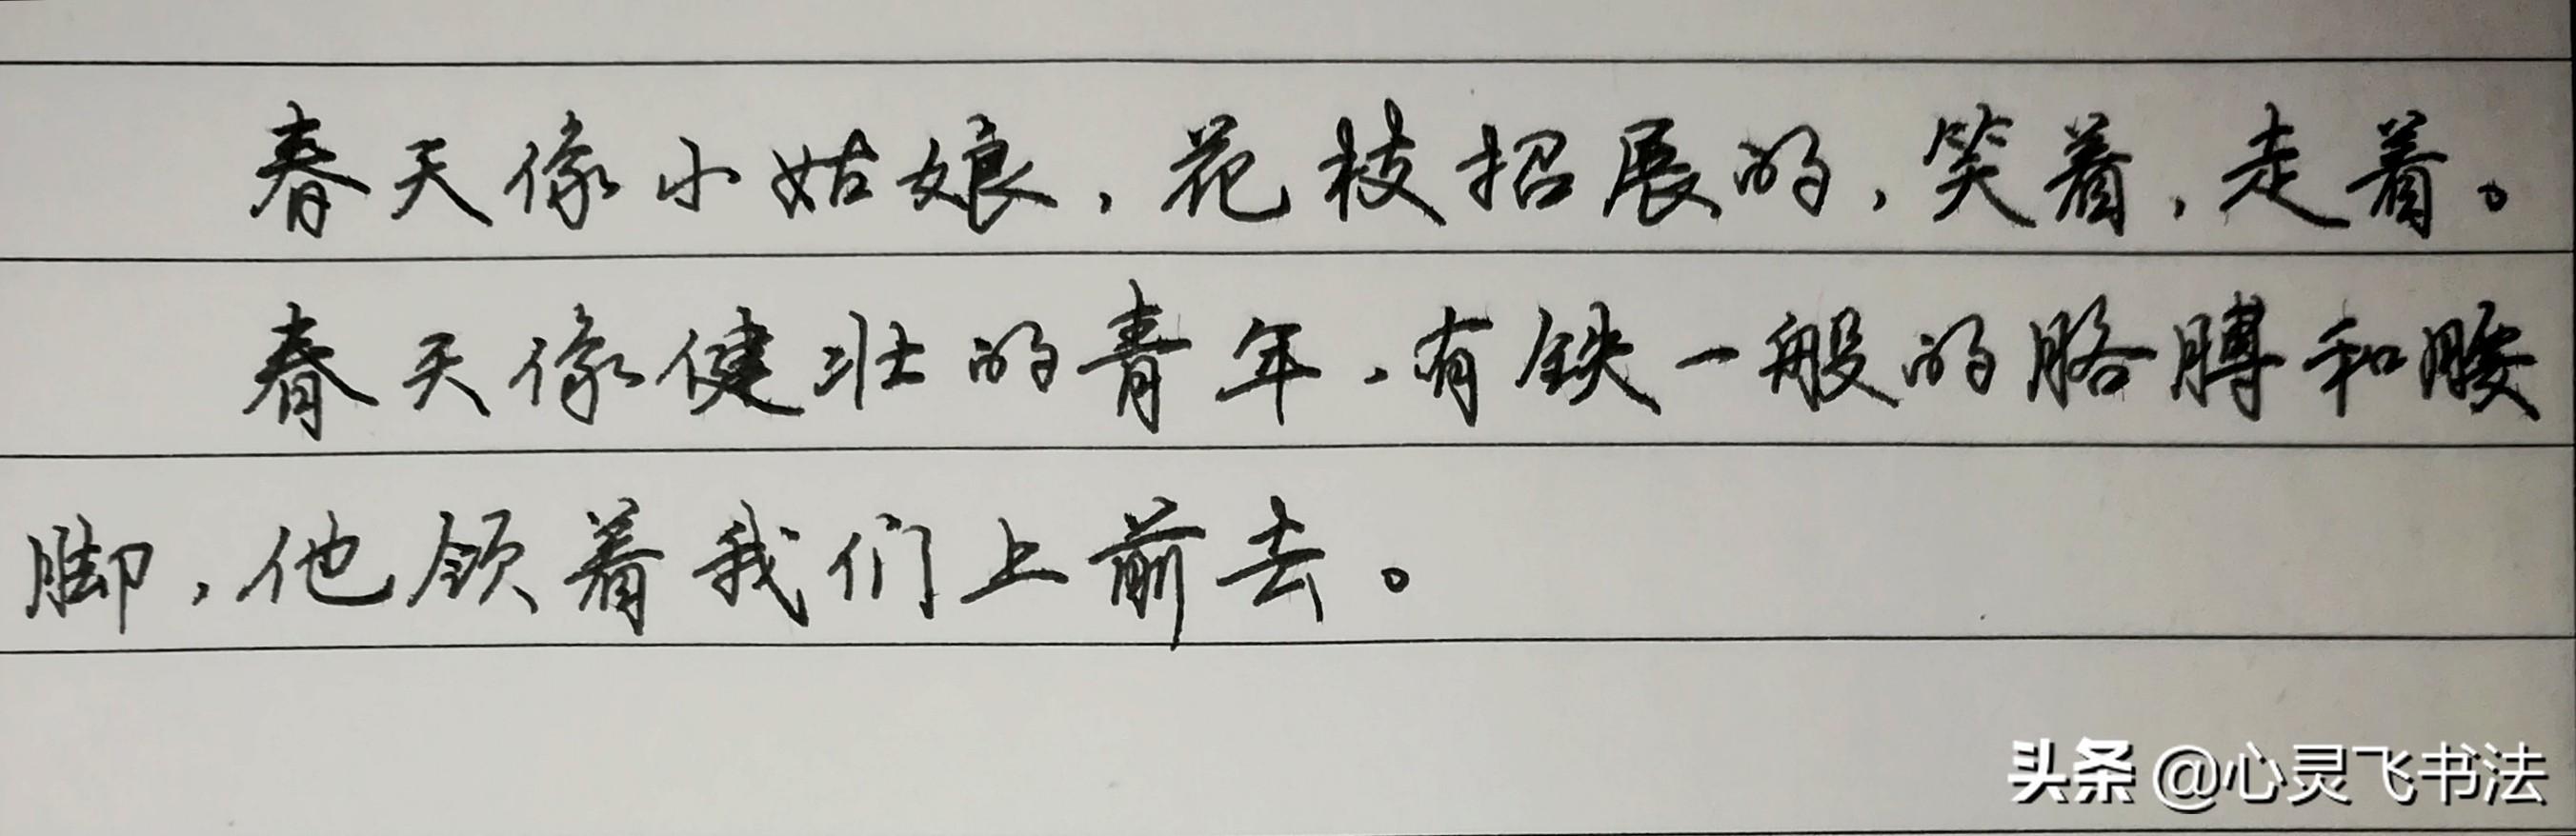 春天像小姑娘，花枝招展的，笑着，走着。
春天像健壮的青年，有铁一般的胳膊和腰
脚，他领着我们上前去。
头条 @心灵飞书法